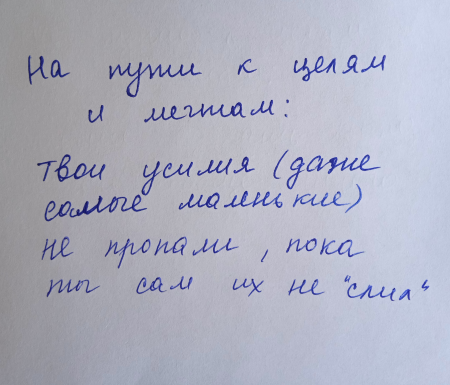 На пути к целям
и мечтам:
Твои усилия (даже
самые маленькие)
не пропали, пока
ты сам их не "слил"